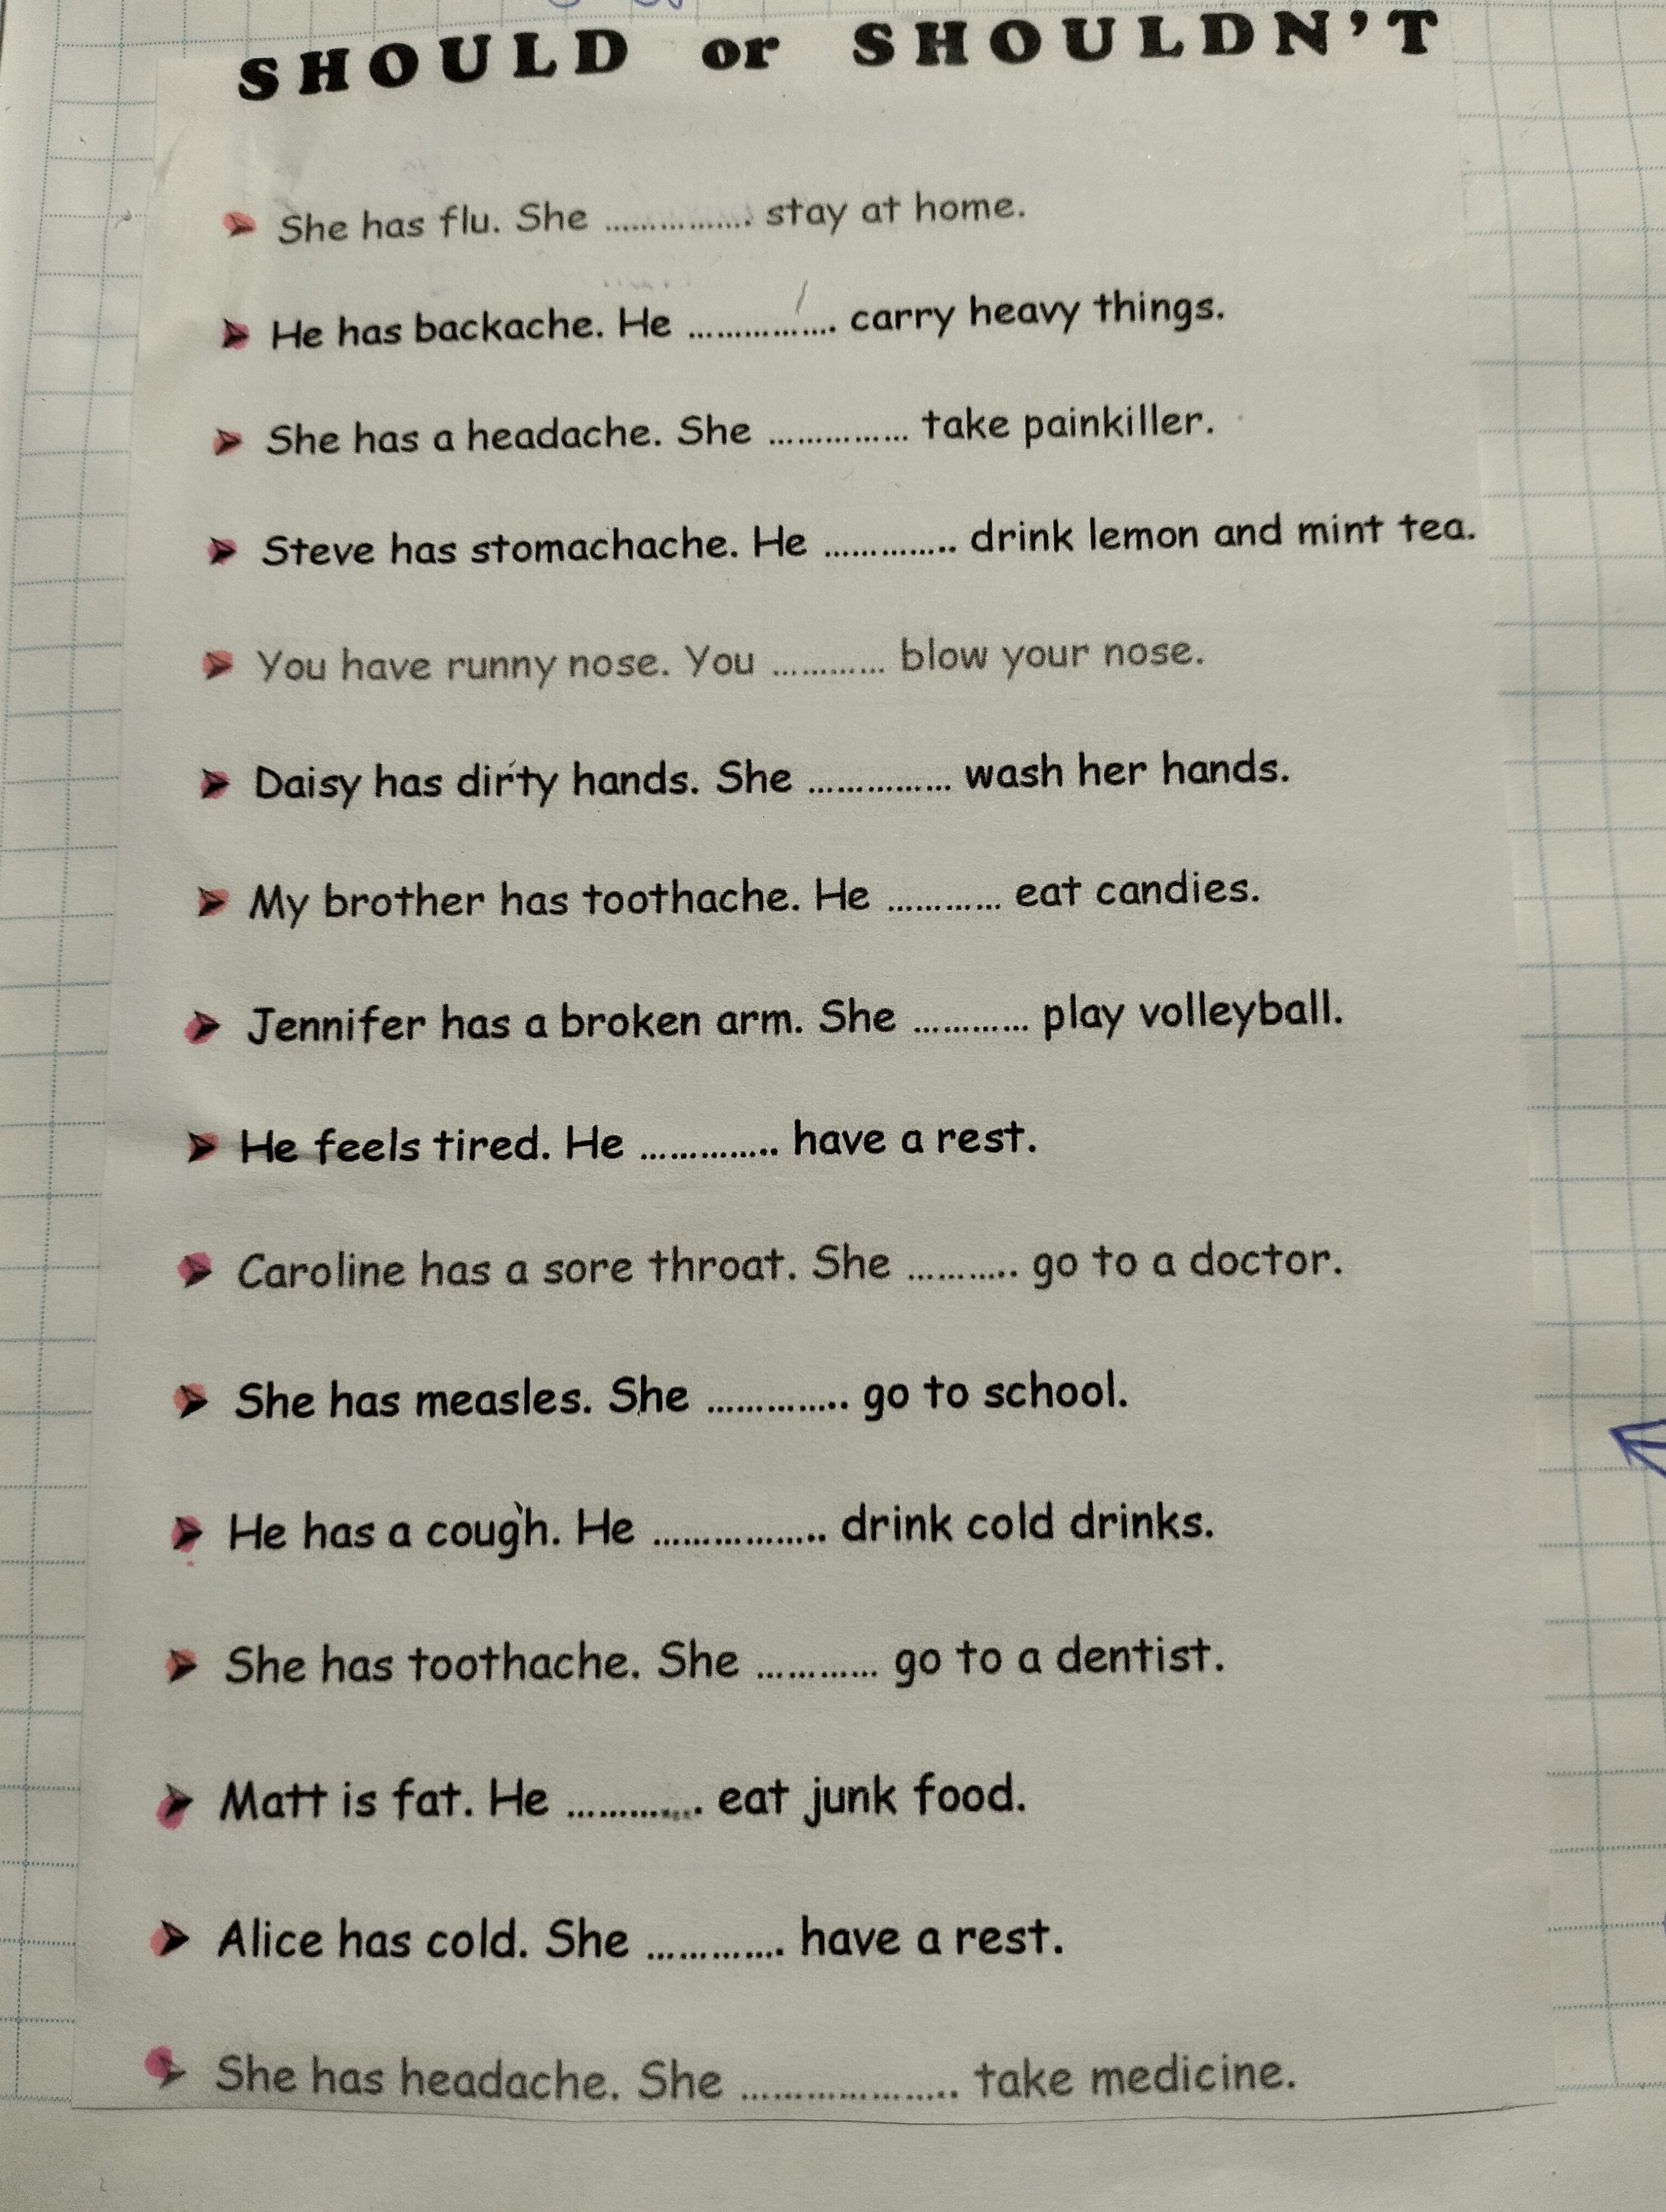 SHOULD or SHOULDN'T
➤ She has flu. She ................ stay at home.
➤ He has backache. He ................ carry heavy things.
➤ She has a headache. She ............... take painkiller.
➤ Steve has stomachache. He .............. drink lemon and mint tea.
➤ You have runny nose. You ............ blow your nose.
➤ Daisy has dirty hands. She ............... wash her hands.
➤ My brother has toothache. He ............ eat candies.
➤ Jennifer has a broken arm. She ............ play volleyball.
➤ He feels tired. He .............. have a rest.
➤ Caroline has a sore throat. She ........... go to a doctor.
➤ She has measles. She .............. go to school.
➤ He has a cough. He ................. drink cold drinks.
➤ She has toothache. She ............ go to a dentist.
➤ Matt is fat. He ............. eat junk food.
➤ Alice has cold. She ............. have a rest.
➤ She has headache. She .................... take medicine.